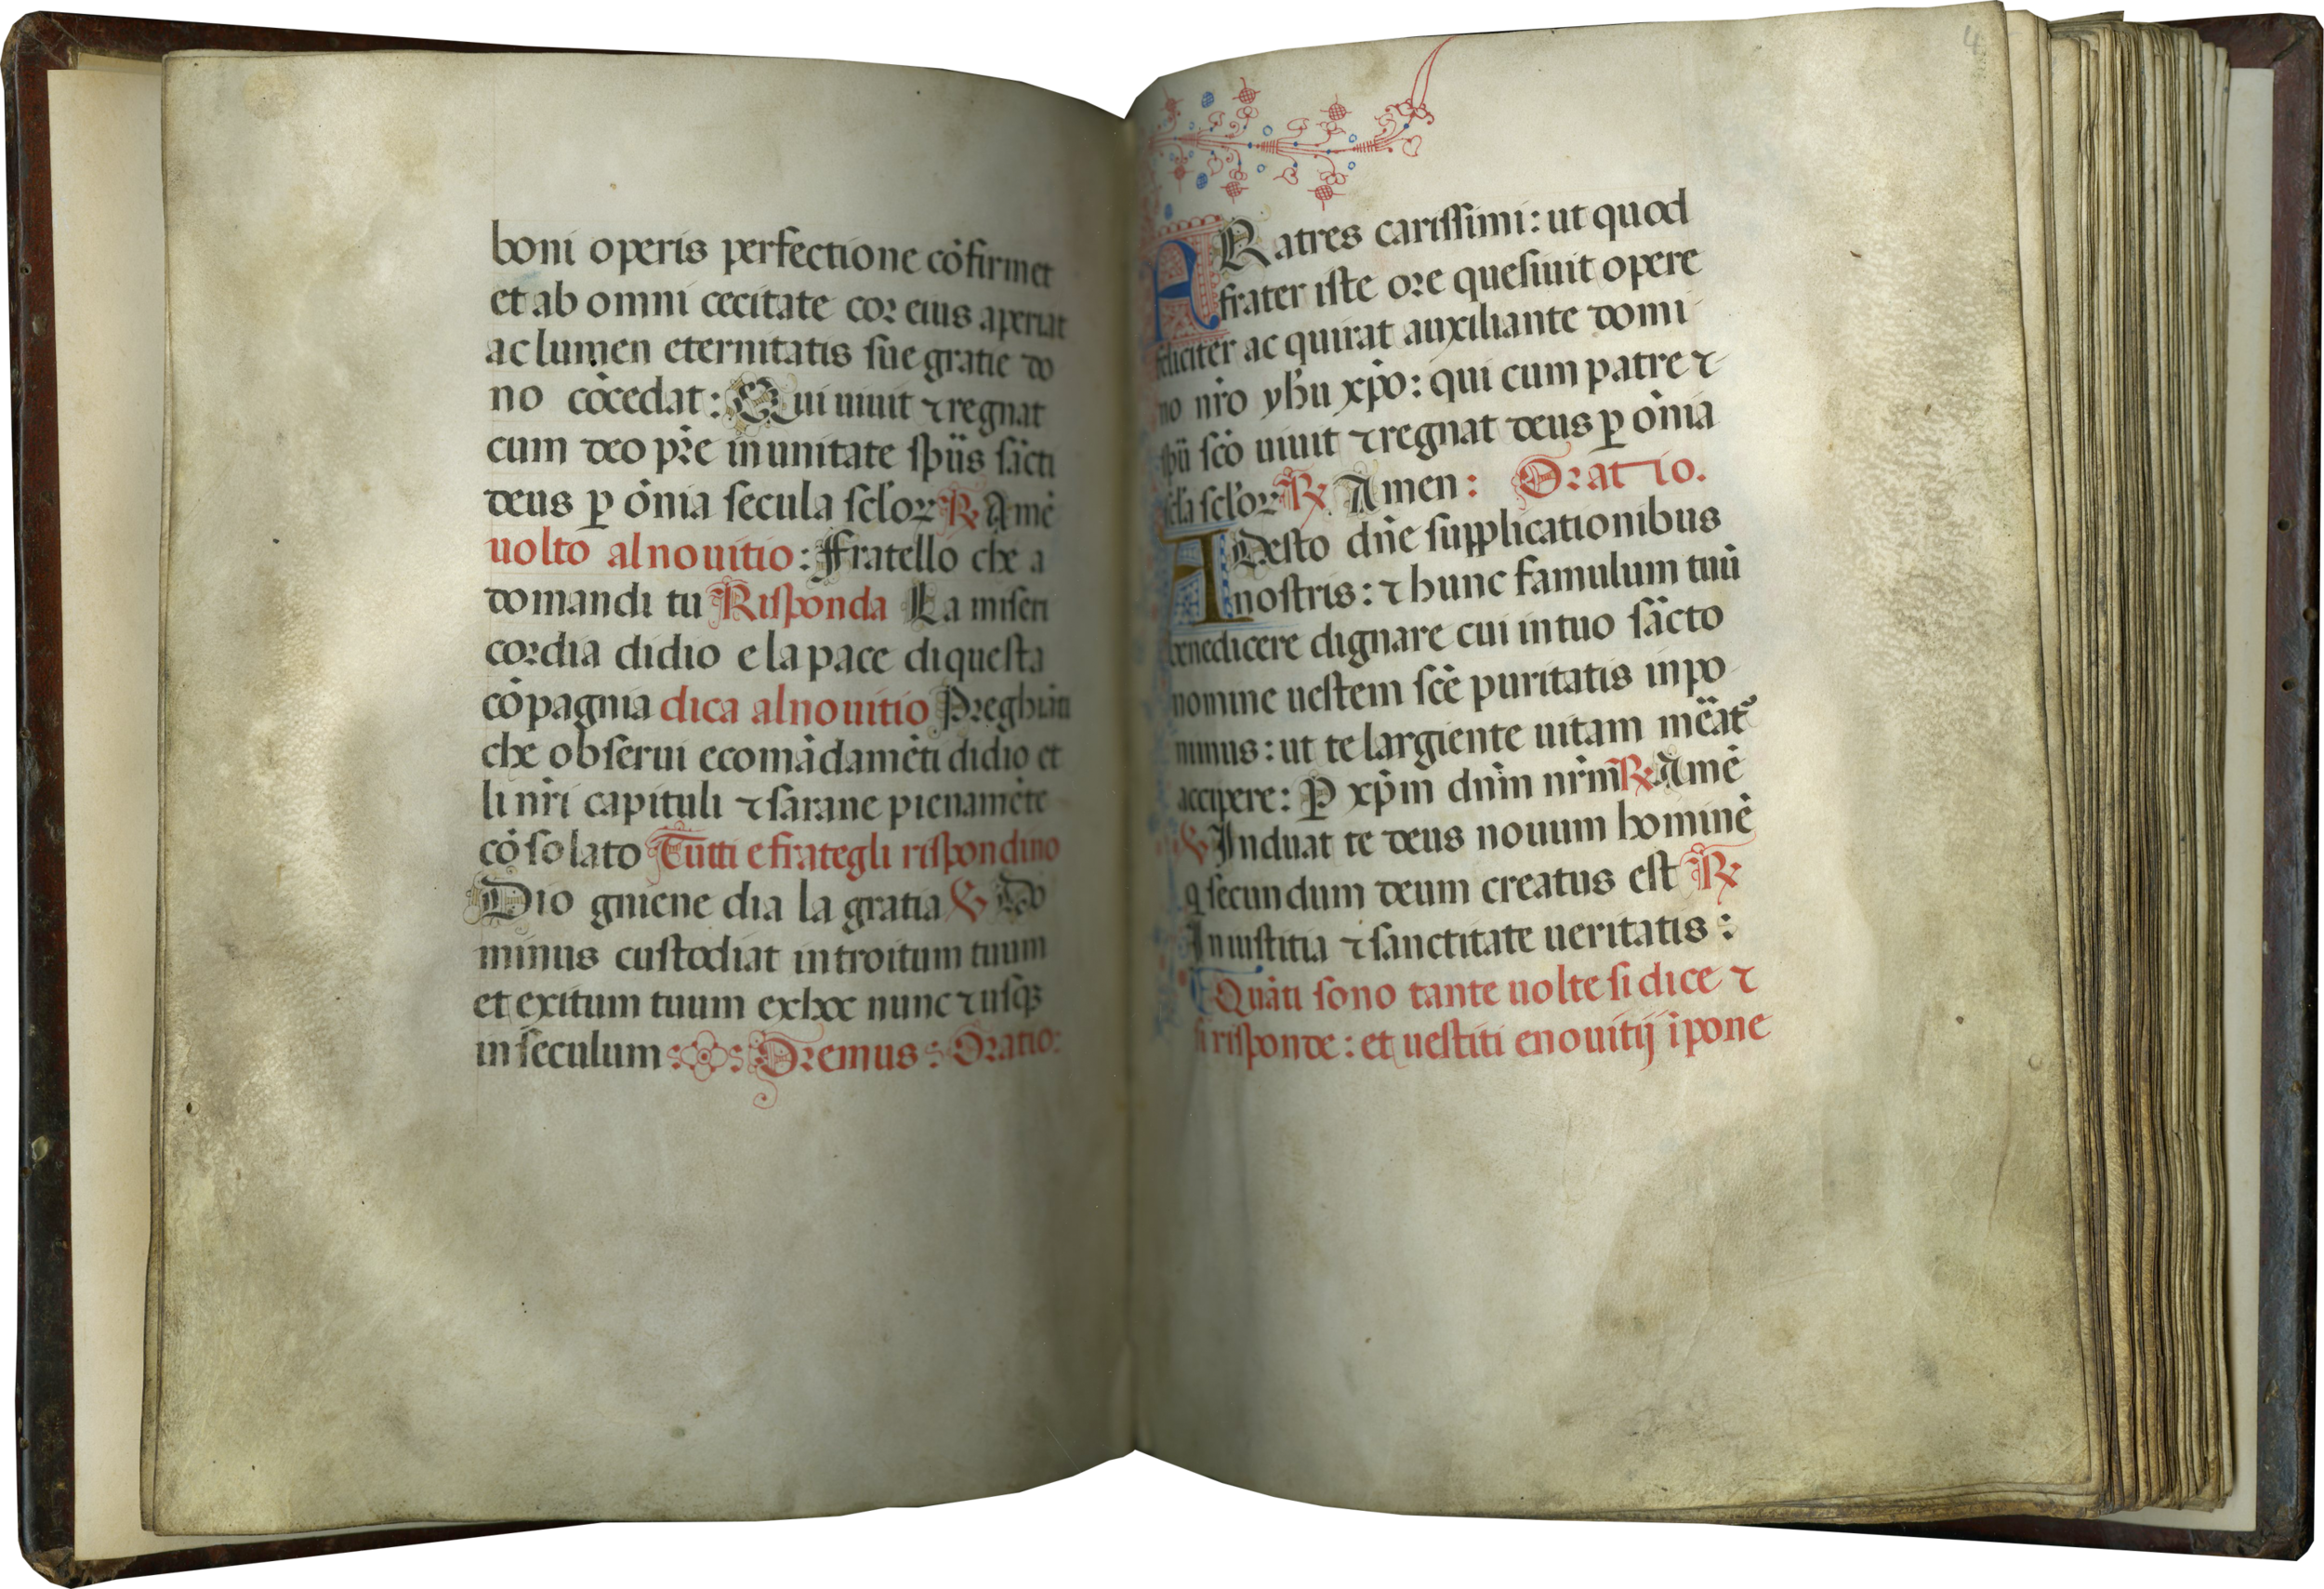 boni operis perfectione cȯfirmet
et ab omni cecitate cor eius aperiat
ac lumen eternitatis sue gratie do
no cȯcedat: Qui uiuit ⁊ regnat
cum deo pr̄e in unitate spūs sācti
deus ꝑ ōnia secula scl̄oꝝ ℟ Amē
uolto al nouitio: Fratello che a
domandi tu Risponda La miseri
cordia didio e la pace diquesta
cōpagnia dica al nouitio Preghiāti
che obserui ecomādamēti didio et
li nr̄i capituli ⁊ sarane pienamēte
cōsolato Tutti e frategli rispondino
Dio gniene dia la gratia ℣ Do
minus custodiat introitum tuum
et exitum tuum exhoc nunc ⁊ usqꝫ
in seculum: Oremus: Oratio:
4
Ratres carissimi: ut quod
frater iste ore quesiuit opere
feliciter ac quirat auxiliante domi
no nr̄o yh̄u xp̄o: qui cum patre ⁊
sp̄ū sc̄o uiuit ⁊ regnat deus ꝑ ōnia
scl̄a scl̄oꝝ ℟ Amen: Oratio.
ADesto dn̄e supplicationibus
nostris: ⁊ hunc famulum tuū
benedicere dignare cui in tuo sācto
nomine uestem sc̄ē puritatis inpo
nimus: ut te largiente uitam
accipere: P xp̄m dn̄m nr̄m ℟ Amē
℣ Induat te deus nouum hominē
q secundum deum creatus est ℟
In iustitia ⁊ sanctitate ueritatis:
Quāti sono tante uolte si dice ⁊
si risponde: et uestiti enouitij īpone